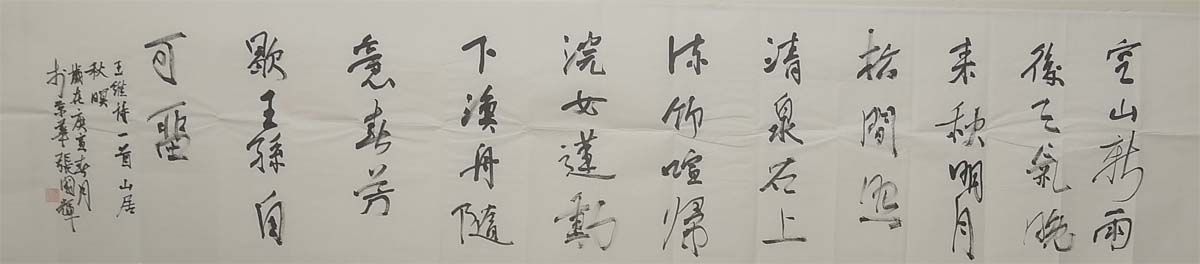 空山新雨
後天氣晚
来秋明月
松間照
清泉石上
流竹喧歸
浣女蓮動
下漁舟隨
意春芳
歇王孫自
可留
王維詩一首山居
秋暝
歲在庚寅春月
於京華張國輝